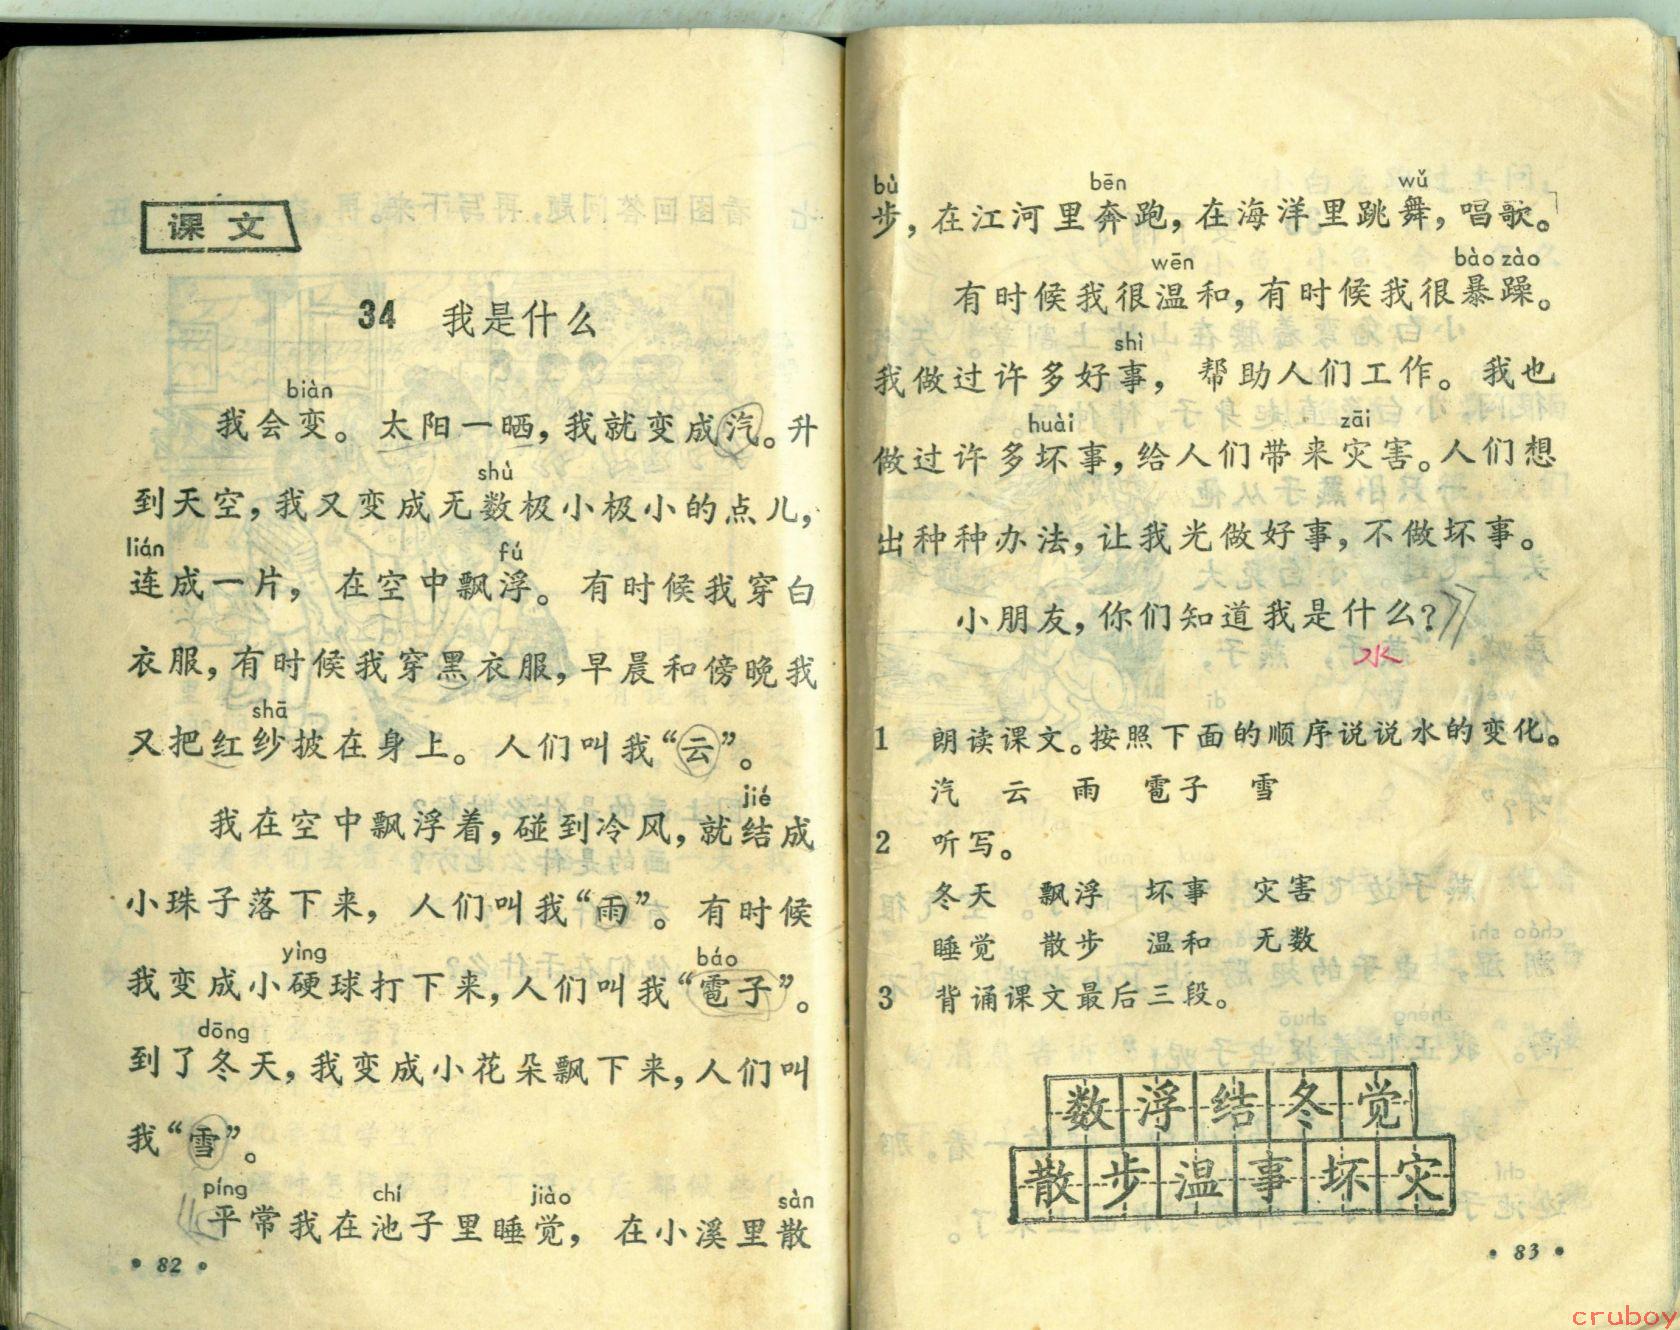 课文
34 我是什么
biàn
我会变。太阳一晒，我就变成汽。升
shù
到天空，我又变成无数极小极小的点儿，
lián fú
连成一片，在空中飘浮。有时候我穿白
衣服，有时候我穿黑衣服，早晨和傍晚我
shā
又把红纱披在身上。人们叫我“云”。
jié
我在空中飘浮着，碰到冷风，就结成
小珠子落下来，人们叫我“雨”。有时候
yìng báo
我变成小硬球打下来，人们叫我“雹子”。
dōng
到了冬天，我变成小花朵飘下来，人们叫
我“雪”。
píng chí jiào sàn
平常我在池子里睡觉，在小溪里散
• 82 •
bù bēn wǔ
步，在江河里奔跑，在海洋里跳舞，唱歌。
wēn bào zào
有时候我很温和，有时候我很暴躁。
shì
我做过许多好事，帮助人们工作。我也
huài zāi
做过许多坏事，给人们带来灾害。人们想
出种种办法，让我光做好事，不做坏事。
小朋友，你们知道我是什么？
水
1 朗读课文。按照下面的顺序说说水的变化。
汽 云 雨 雹子 雪
2 听写。
冬天 飘浮 坏事 灾害
睡觉 散步 温和 无数
3 背诵课文最后三段。
数浮结冬觉
散步温事坏灾
• 83 •
cruboy